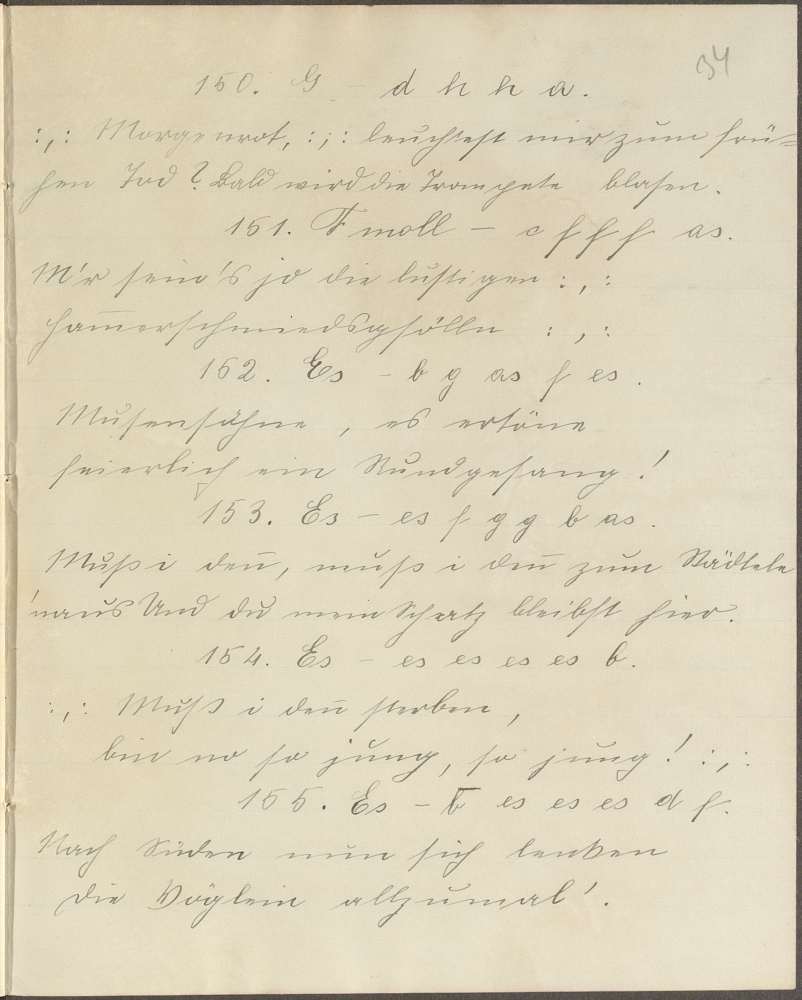 34
150. G – d h h a.
:,: Morgenrot, :,: leuchtest mir zum frü=
hen Tod? Bald wird die Trompete blasen.
151. F moll – c f f f as.
M'r sein's jo die lustigen :,:
Ham̄erschmiedsgsölln :,:
152. Es – b g as f es.
Musensöhne, es ertöne
feierlich ein Rundgesang!
153. Es – es f g g b as.
Muß i den̄, muß i den̄ zum Städtele
'naus Und du mein Schatz bleibst hier.
154. Es – es es es es b.
:,: Muß i den̄ sterben,
bin no so jung, so jung! :,:
155. Es – b es es es d f.
Nach Süden nun sich lenken
die Vöglein allzumal'.